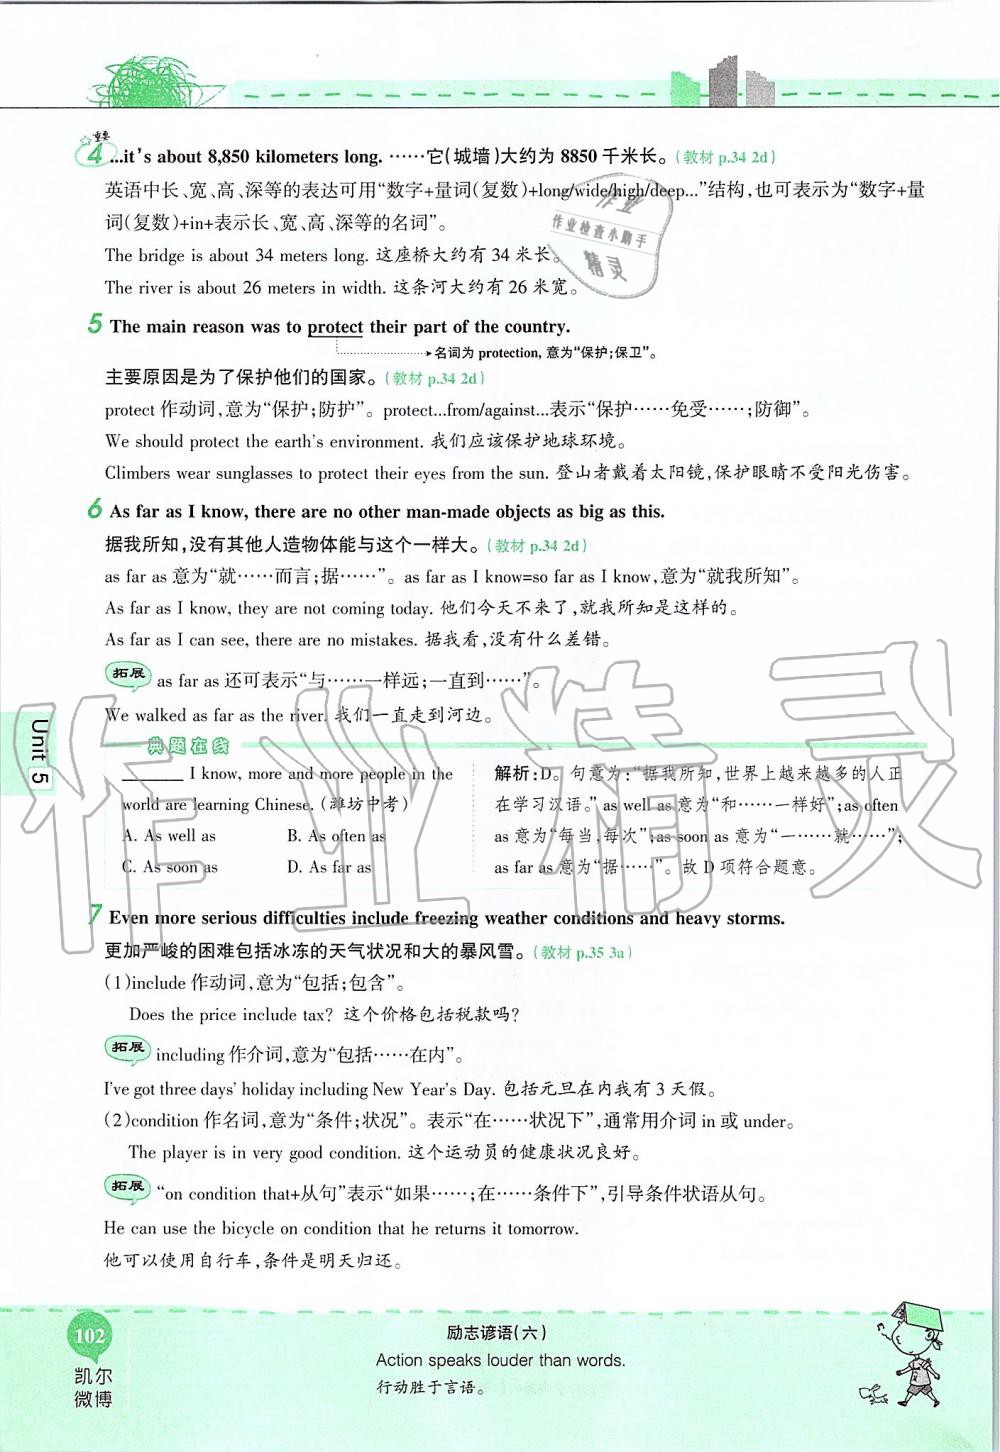 重要
4 ...it's about 8,850 kilometers long. ……它(城墙)大约为 8850 千米长。(教材 p.34 2d)
英语中长、宽、高、深等的表达可用“数字+量词(复数)+long/wide/high/deep...”结构,也可表示为“数字+量
词(复数)+in+表示长、宽、高、深等的名词”。
The bridge is about 34 meters long. 这座桥大约有 34 米长。
The river is about 26 meters in width. 这条河大约有 26 米宽。
作业
作业检查小助手
精灵
5 The main reason was to protect their part of the country.
名词为 protection, 意为“保护;保卫”。
主要原因是为了保护他们的国家。(教材 p.34 2d)
protect 作动词,意为“保护;防护”。protect...from/against...表示“保护……免受……;防御”。
We should protect the earth's environment. 我们应该保护地球环境。
Climbers wear sunglasses to protect their eyes from the sun. 登山者戴着太阳镜,保护眼睛不受阳光伤害。
6 As far as I know, there are no other man-made objects as big as this.
据我所知,没有其他人造物体能与这个一样大。(教材 p.34 2d)
as far as 意为“就……而言;据……”。as far as I know=so far as I know,意为“就我所知”。
As far as I know, they are not coming today. 他们今天不来了,就我所知是这样的。
As far as I can see, there are no mistakes. 据我看,没有什么差错。
拓展 as far as 还可表示“与……一样远;一直到……”。
We walked as far as the river. 我们一直走到河边。
典题在线
_______ I know, more and more people in the
world are learning Chinese. (潍坊中考)
A. As well as B. As often as
C. As soon as D. As far as
解析:D。句意为:“据我所知,世界上越来越多的人正
在学习汉语。”as well as 意为“和……一样好”;as often
as 意为“每当,每次”;as soon as 意为“一……就……”;
as far as 意为“据……”。故 D 项符合题意。
7 Even more serious difficulties include freezing weather conditions and heavy storms.
更加严峻的困难包括冰冻的天气状况和大的暴风雪。(教材 p.35 3a)
(1)include 作动词,意为“包括;包含”。
Does the price include tax? 这个价格包括税款吗?
拓展 including 作介词,意为“包括……在内”。
I've got three days' holiday including New Year's Day. 包括元旦在内我有 3 天假。
(2)condition 作名词,意为“条件;状况”。表示“在……状况下”,通常用介词 in 或 under。
The player is in very good condition. 这个运动员的健康状况良好。
拓展 “on condition that+从句”表示“如果……;在……条件下”,引导条件状语从句。
He can use the bicycle on condition that he returns it tomorrow.
他可以使用自行车,条件是明天归还。
Unit 5
作业精灵
102
凯尔
微博
励志谚语(六)
Action speaks louder than words.
行动胜于言语。